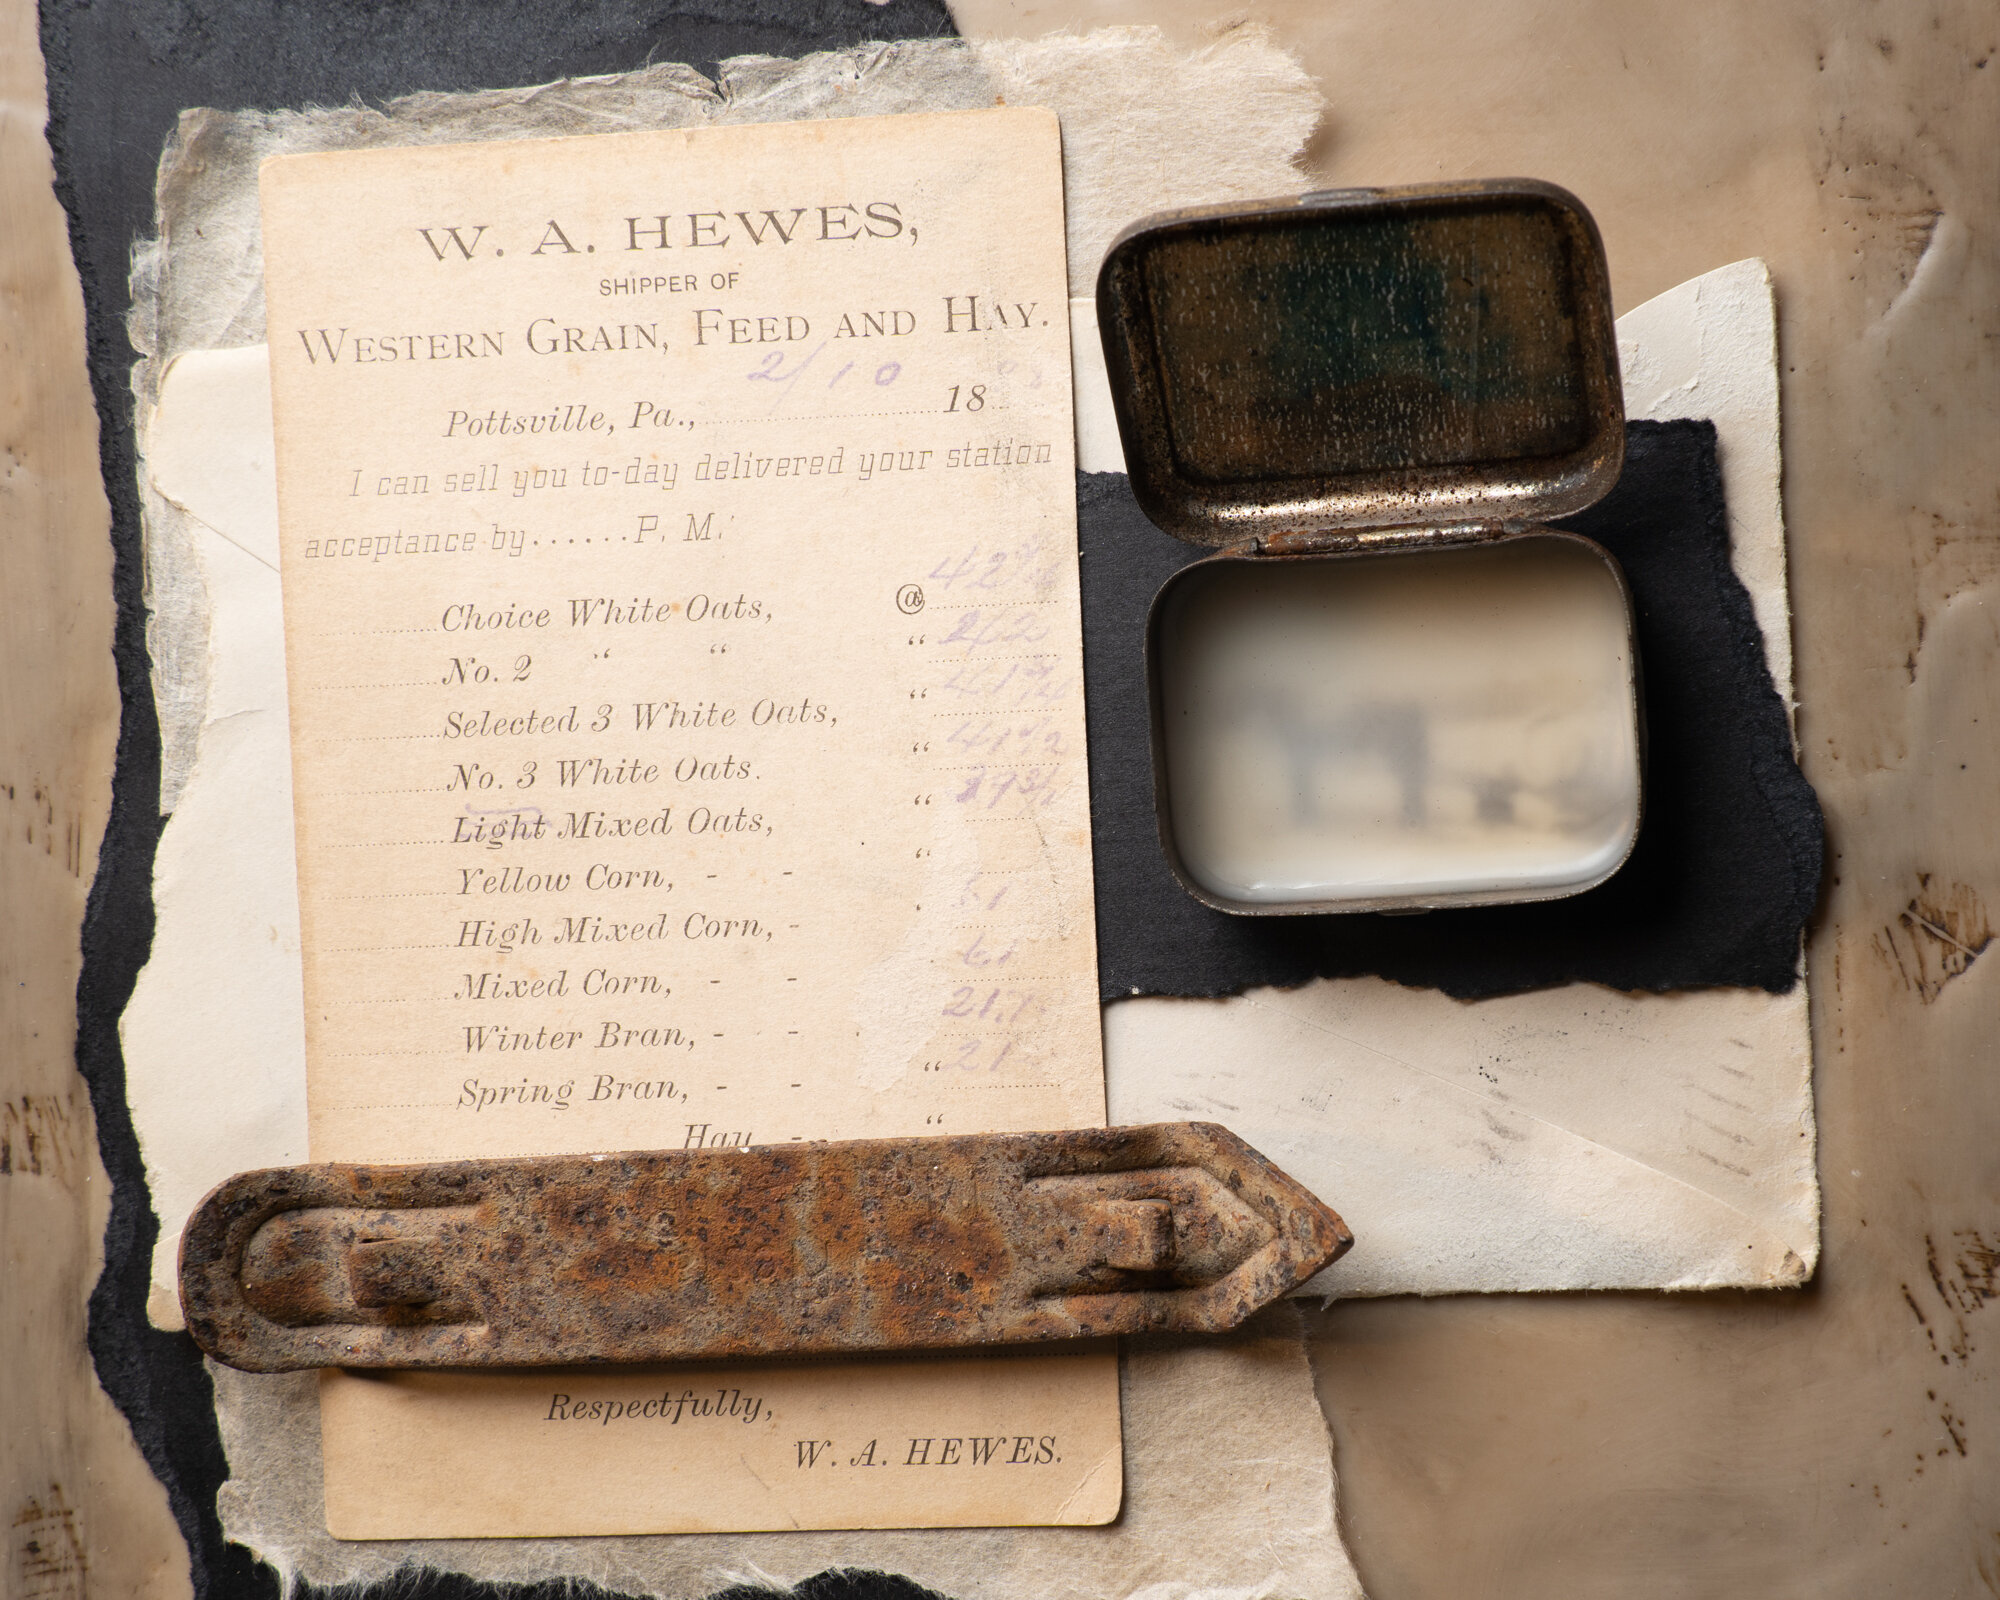 W. A. HEWES,
SHIPPER OF
WESTERN GRAIN, FEED AND HAY.
2/10
Pottsville, Pa., 18
I can sell you to-day delivered your station
acceptance by......P. M.
Choice White Oats, @ 42
No. 2 “ “ “
Selected 3 White Oats, “
No. 3 White Oats. “ 41 1/2
Light Mixed Oats, “
Yellow Corn, - - “
High Mixed Corn, - 51
Mixed Corn, - -
Winter Bran, - - 21.
Spring Bran, - - “ 21
Hay - “
Respectfully,
W. A. HEWES.